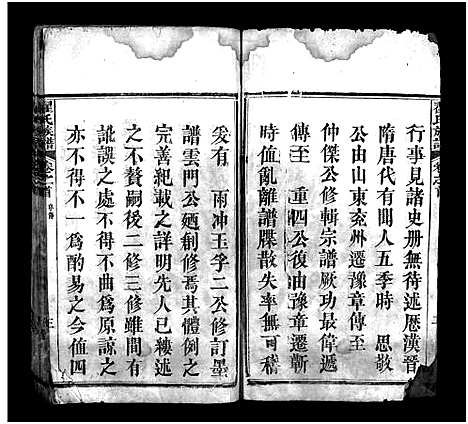 行事見諸史册無待述歷漢晉
隋唐代有聞人五季時　思敬
公由山東兖州遷豫章傳至
仲傑公修輯宗譜厥功最偉遞
傳至　重四公復由豫章遷蘄
時值亂離譜牒散失率無可稽
爰有　雨冲玉孚二公修訂墨
譜雲門公廼創修焉其體例之
完善紀載之詳明先人已縷述
之不贅嗣後二修三修雖間有
訛誤之處不得不曲為原諒之
亦不得不一為酌易之今值四
翟氏族譜
卷之首